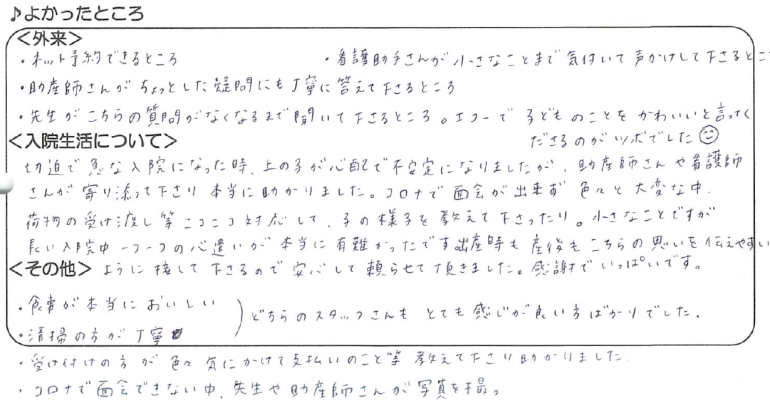 ♪よかったところ
＜外来＞
・ネット予約できるところ ・看護助手さんが小さなことまで気付いて声かけして下さるとこ
・助産師さんがちょっとした疑問にも丁寧に答えて下さるところ
・先生がこちらの質問がなくなるまで聞いて下さるところ。エコーで子どものことをかわいいと言ってく
ださるのがツボでした☺
＜入院生活について＞
切迫で急な入院になった時、上の子が心配で不安定になりましたが、助産師さんや看護師
さんが寄り添って下さり本当に助かりました。コロナで面会が出来ず色々と大変な中、
荷物の受け渡し等ニコニコ対応して、子の様子を教えて下さったり。小さなことですが
長い入院中一つ一つの心遣いが本当に有難かったです出産時も産後もこちらの思いを伝えやすい
＜その他＞ように接して下さるので安心して頼らせて頂きました。感謝でいっぱいです。
・食事が本当においしい
・清掃の方が丁寧
どちらのスタッフさんもとても感じが良い方ばかりでした。
・受け付けの方が色々気にかけて支払いのこと等教えて下さり助かりました。
・コロナで面会できない中、先生や助産師さんが写真を撮っ